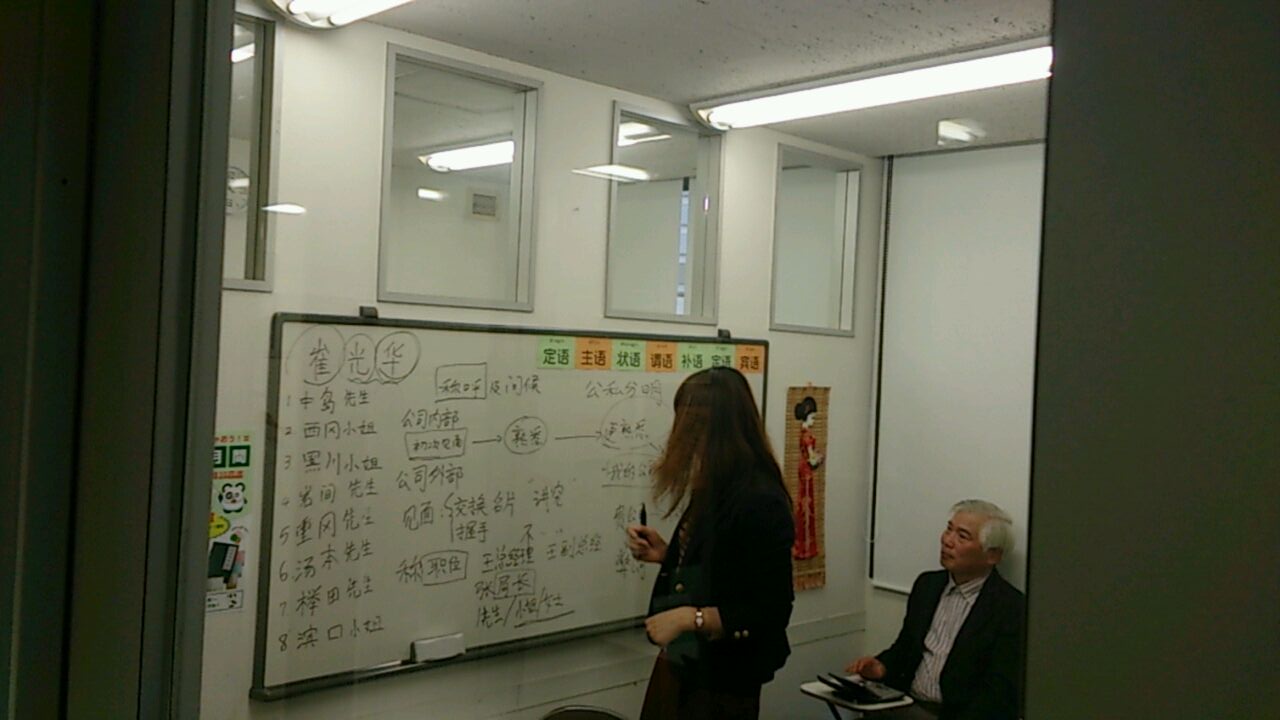 崔光华
定语 主语 状语 谓语 补语 定语 宾语
称呼及问候
公私分明
1 中岛先生
2 西冈小姐
3 黑川小姐
4 岩间先生
5 重冈先生
6 汤本先生
7 榉田先生
8 滨口小姐
公司内部
初次见面 → 熟悉 →
公司外部
"我的公
见面:交换名片
握手
不
称职位
王总经理 王副总经理
张局长
先生/小姐/女士
月